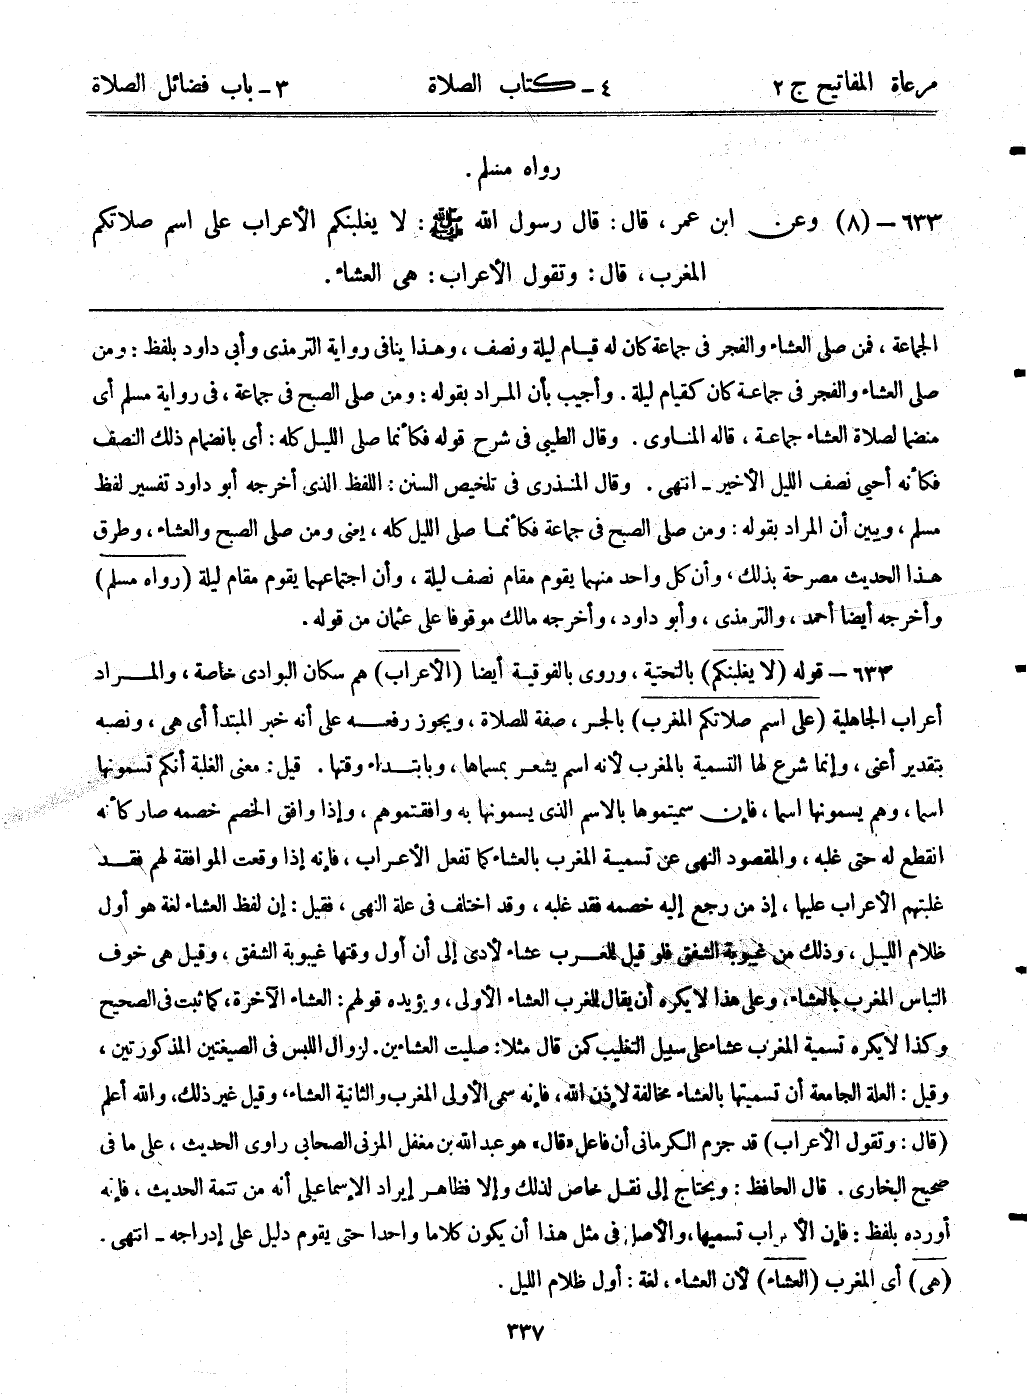 مرعاة المفاتيح ج ٢ ٤ ـ كتاب الصلاة ٣ ـ باب فضائل الصلاة
رواه مسلم .
٦٣٣ – (٨) وعن ابن عمر ، قال : قال رسول الله ﷺ : لا يغلبنكم الأعراب على اسم صلاتكم
المغرب ، قال : وتقول الأعراب : هى العشاء .
الجماعة ، فمن صلى العشاء والفجر فى جماعة كان له قيام ليلة ونصف ، وهذا ينافى رواية الترمذى وأبي داود بلفظ : ومن
صلى العشاء والفجر فى جماعة كان كقيام ليلة . وأجيب بأن المراد بقوله : ومن صلى الصبح فى جماعة ، فى رواية مسلم أى
منضما لصلاة العشاء جماعة ، قاله المناوى . وقال الطيبى فى شرح قوله فكأنما صلى الليل كله : أى بانضمام ذلك النصف
فكأنه أحيي نصف الليل الأخير ـ انتهى . وقال المنذرى فى تلخيص السنن : اللفظ الذى أخرجه أبو داود تفسير لفظ
مسلم ، ويبين أن المراد بقوله : ومن صلى الصبح فى جماعة فكأنما صلى الليل كله ، يعنى ومن صلى الصبح والعشاء ، وطرق
هذا الحديث مصرحة بذلك ، وأن كل واحد منهما يقوم مقام نصف ليلة ، وأن اجتماعهما يقوم مقام ليلة (رواه مسلم)
وأخرجه أيضا أحمد ، والترمذى ، وأبو داود ، وأخرجه مالك موقوفا على عثمان من قوله .
٦٣٣ – قوله (لا يغلبنكم) بالتحتية ، وروى بالفوقية أيضا (الأعراب) هم سكان البوادى خاصة ، والمراد
أعراب الجاهلية (على اسم صلاتكم المغرب) بالجر ، صفة للصلاة ، ويجوز رفعه على أنه خبر المبتدأ أى هى ، ونصبه
بتقدير أعنى ، وإنما شرع لها التسمية بالمغرب لأنه اسم يشعر بمسماها ، وبابتداء وقتها . قيل : معنى الغلبة أنكم تسمونها
اسما ، وهم يسمونها اسما ، فإن سميتموها بالاسم الذى يسمونها به وافقتموهم ، وإذا وافق الخصم خصمه صار كأنه
انقطع له حتى غلبه ، والمقصود النهى عن تسمية المغرب بالعشاء كما تفعل الأعراب ، فإنه إذا وقعت الموافقة لهم فقد
غلبتهم الأعراب عليها ، إذ من رجع إليه خصمه فقد غلبه ، وقد اختلف فى علة النهى ، فقيل : إن لفظ العشاء لغة هو أول
ظلام الليل ، وذلك من غيبوبة الشفق فلو قيل للمغرب عشاء لأدى إلى أن أول وقتها غيبوبة الشفق ، وقيل هى خوف
التباس المغرب بالعشاء ، وعلى هذا لا يكره أن يقال للمغرب العشاء الأولى ، ويؤيده قولهم : العشاء الآخرة ، كما ثبت فى الصحيح
وكذا لا يكره تسمية المغرب عشاء على سبيل التغليب كمن قال مثلا : صليت العشاءين . لزوال اللبس فى الصيغتين المذكورتين ،
وقيل : العلة الجامعة أن تسميتها بالعشاء مخالفة لإذن الله ، فإنه سمى الأولى المغرب والثانية العشاء ، وقيل غير ذلك ، والله أعلم
(قال : وتقول الأعراب) قد جزم الكرمانى أن فاعل «قال» هو عبد الله بن مغفل المزنى الصحابي راوى الحديث ، على ما فى
صحيح البخارى . قال الحافظ : ويحتاج إلى نقل خاص لذلك وإلا فظاهر إيراد الإسماعيلى أنه من تتمة الحديث ، فإنه
أورده بلفظ : فإن الأعراب تسميها ، والأصل فى مثل هذا أن يكون كلاما واحدا حتى يقوم دليل على إدراجه ـ انتهى .
(هى) أى المغرب (العشاء) لأن العشاء ، لغة : أول ظلام الليل .
٣٣٧